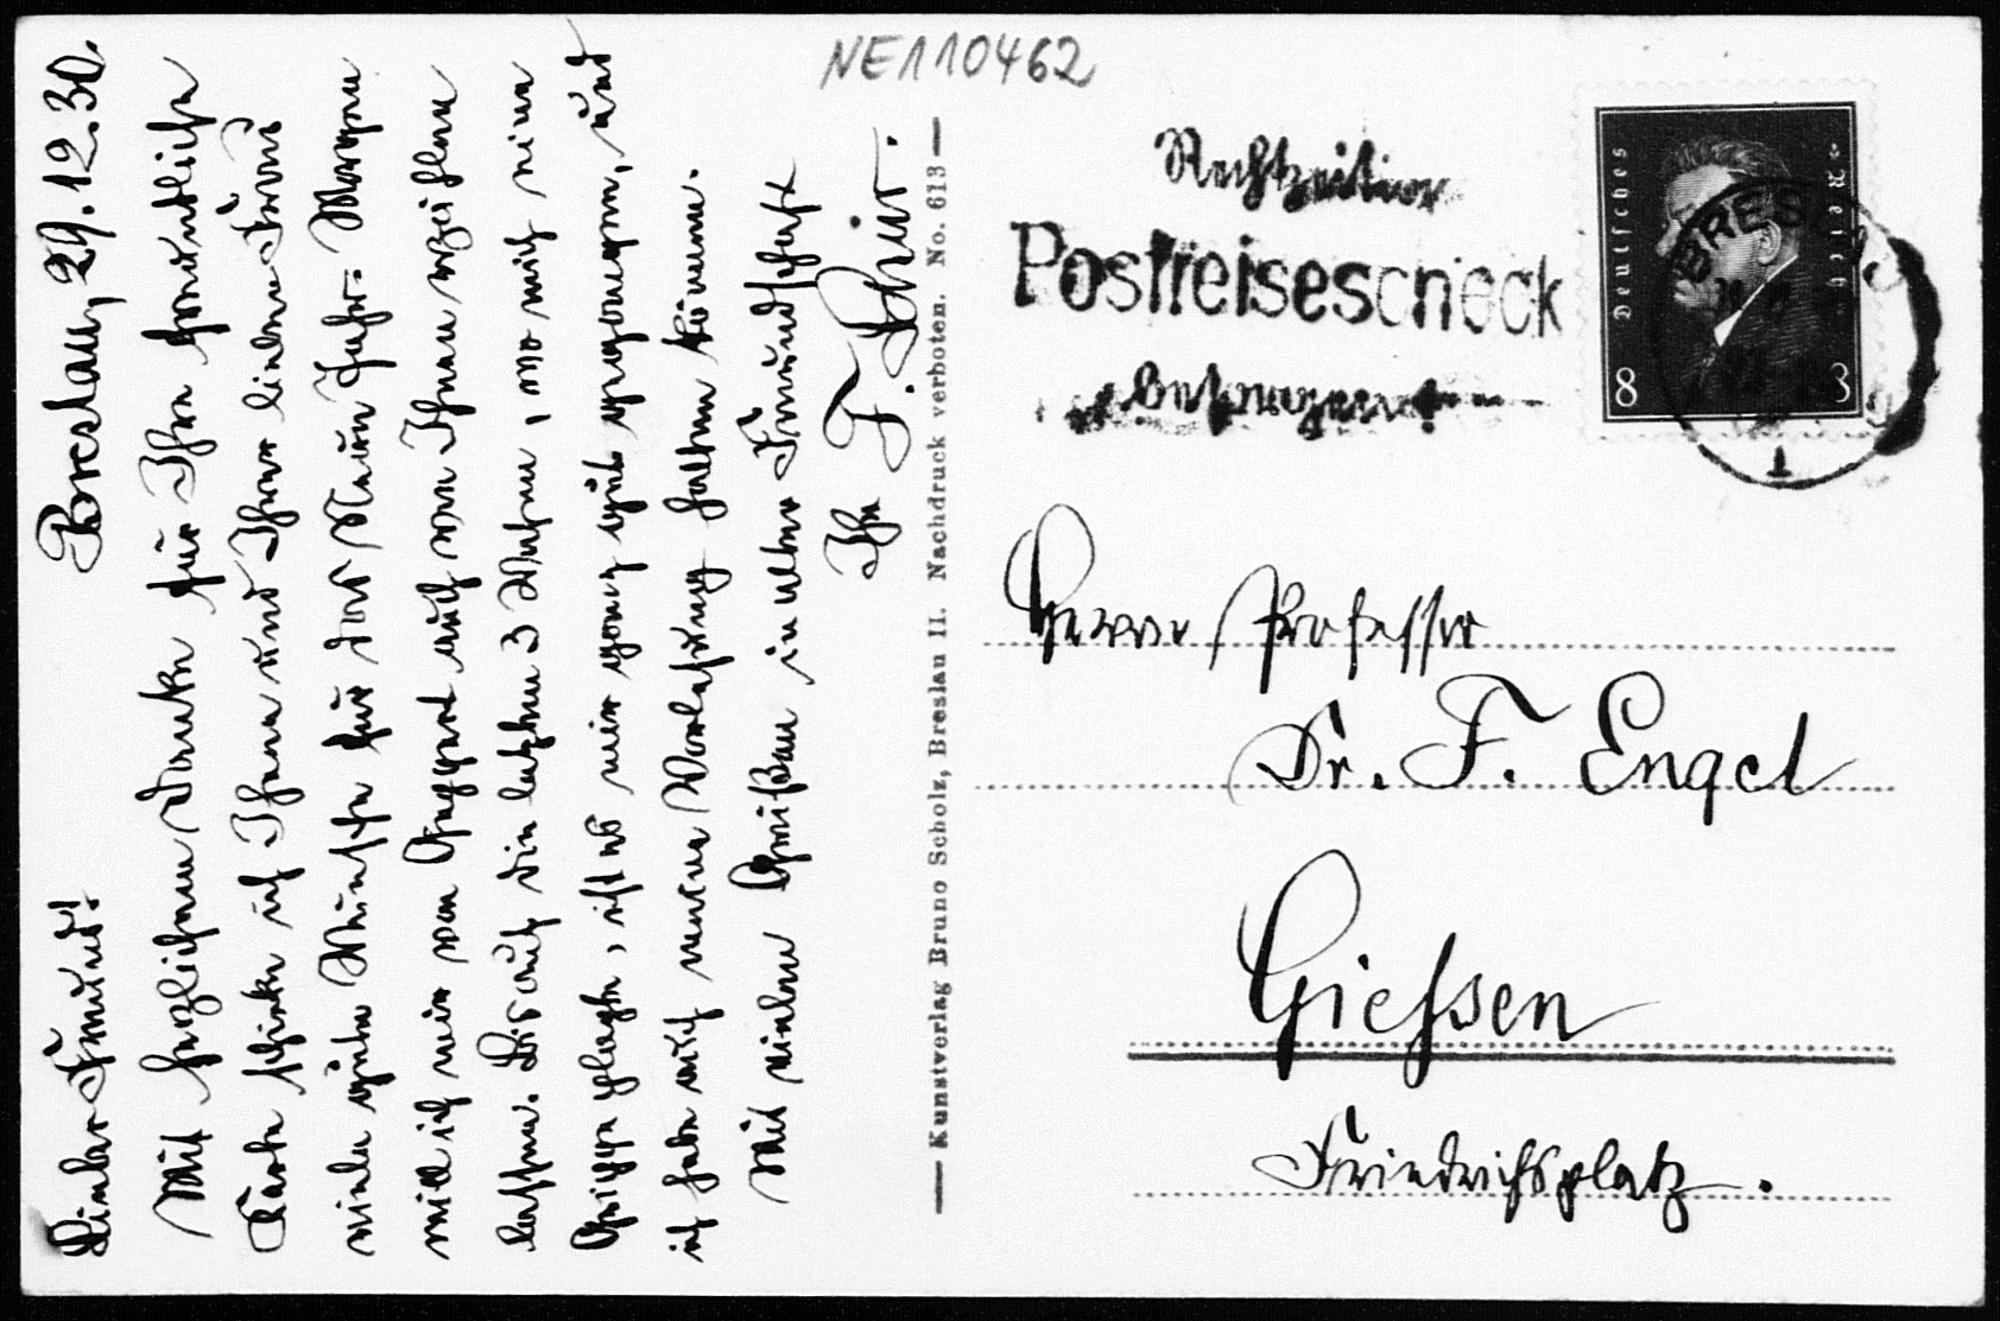 Breslau, 29.12.30.
Lieber Freund!
Mit herzlichem Danke für Ihre freundliche
Karte schicke ich Ihnen und Ihrer lieben Frau
viele gute Wünsche für das Neue Jahr. Morgen
will ich mir von auch von Ihnen erzählen
lassen. Bis auf die letzten 3 Wochen, wo mich eine
Grippe plagte, ist es mir ganz gut gegangen, und
ich habe auch meine Vorlesung halten können.
Mit vielen Grüßen in alter Freundschaft
Ihr F.
Kunstverlag Bruno Scholz, Breslau II. Nachdruck verboten. No. 613
NE110462
Rechtzeitig
Postreisescheck
Deutsches Reich
8 8
BRES
1
Herrn Professor
Dr. F. Engel
Giessen
Friedrichsplatz.